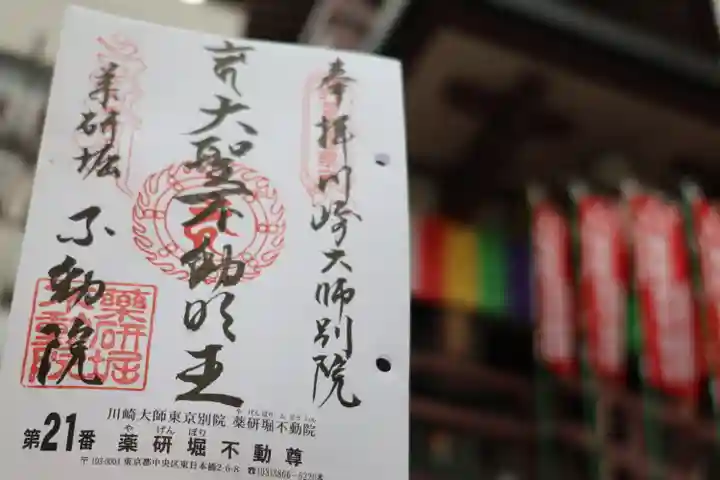 奉拝川崎大師別院
大聖不動明王
薬研堀
不動院
薬研堀
不動院
川崎大師東京別院 薬研堀不動院
第21番 薬研堀不動尊
〒103-0004 東京都中央区東日本橋2-6-8 ☎(03)3866-6220